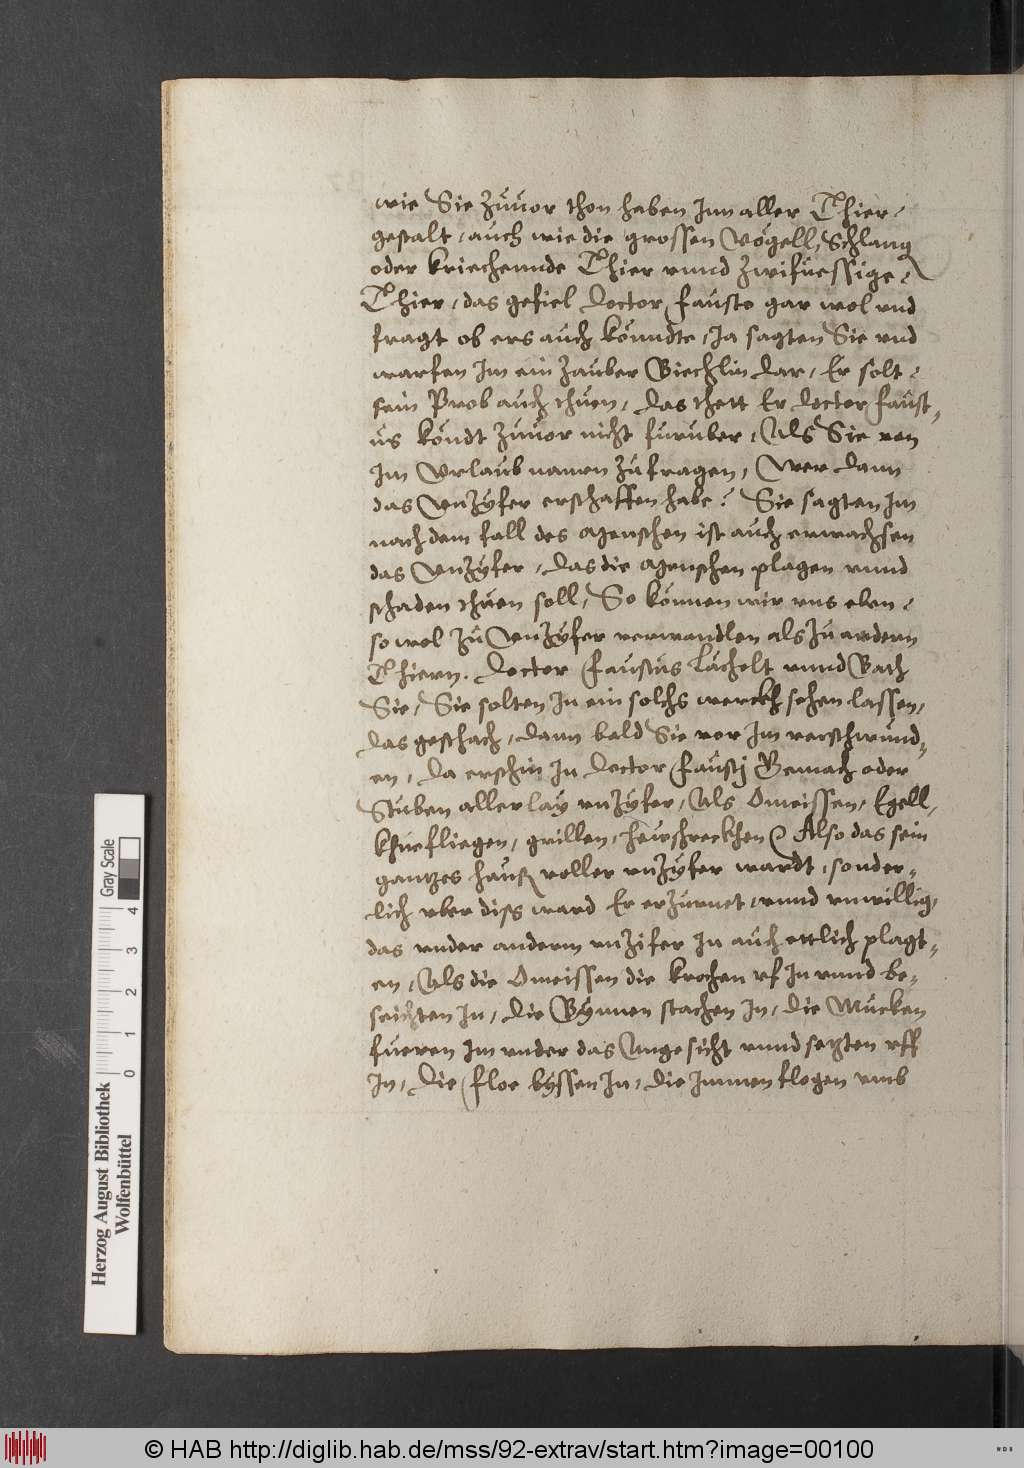 wie Sie zuuor thon haben Inn aller Thier-
gestalt, auch wie die grossen Vögell, Schlang
oder kriechennde Thier vnnd zwifüessige-
Thier, das gefiel Doctor Fausto gar wol vnd
fragt ob ers auch könndte, Ja sagten Sie vnd
warfen Im ein zauber Biechlin dar, Er solt-
sein Prob auch thuen, das thett Er Doctor Faust-
us kondt zuuor nicht furuber, Als Sie von
Im Vrlaub namen zu fragen, Wer dann
das Vnzyfer erschaffen habe? Sie sagten Im
nach dem fall des Menschen ist auch erwachsen
das Vnzyfer, das die Menschen plagen vnnd
schaden thuen soll, So können wir vns eben-
so wol zu Vnzyfer verwandlen als zu andern
Thiern. Doctor Faustus Lächelt vnnd Bath
Sie, Sie solten In ein solchs werckh sehen lassen,
das geschach, dann bald Sie vor Im verschwund-
en, da erschin In Doctor Faustj Gemach oder
Stuben allerlay vnzyfer, Als Omeissen, Egell,
khuefliegen, grillen, hewschreckhen Also das sein
gantzes hauß voller vnzyfer wardt, sonder-
lich vber diss ward Er erzürnet, vnnd vnwillig,
das vnder anderm vnzifer In auch ettlich plagt-
en, Als die Omeissen die krochen vf In vnnd be-
saichten In, die Bynnen stachen In, die Mucken
fueren Im vnder das Angesicht vnnd setzten vff
In, die Floe byssen In, die Immen flogen vmb
Herzog August Bibliothek
Wolfenbüttel
Gray Scale
0 1 2 3 4
© HAB http://diglib.hab.de/mss/92-extrav/start.htm?image=00100